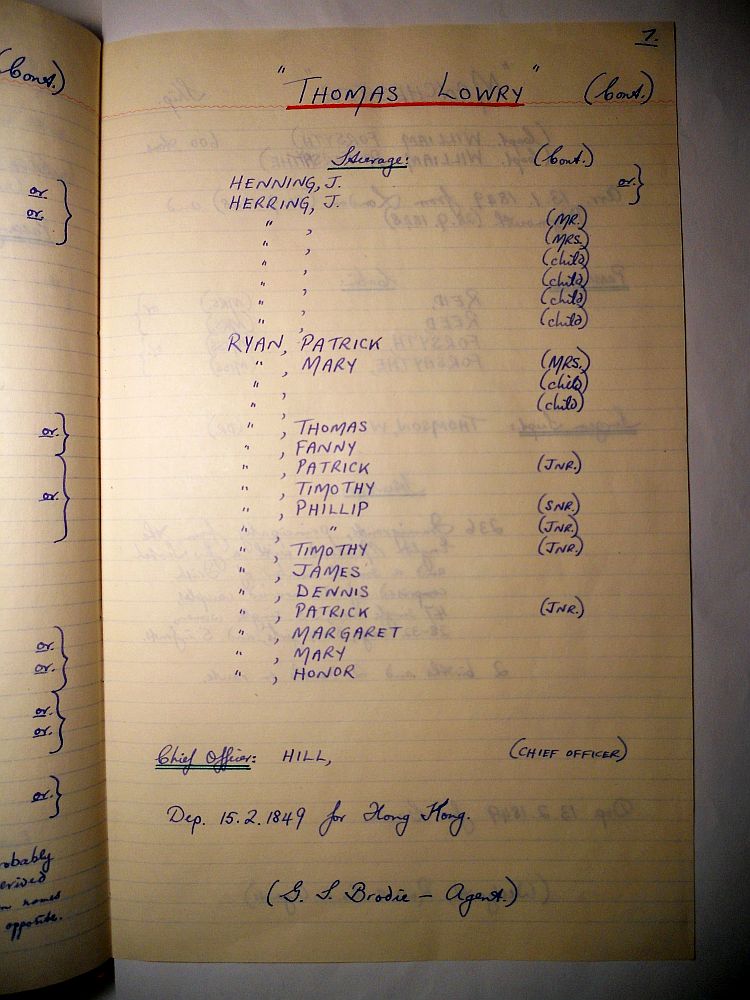 (Cont.)
or.
or.
or.
or.
or.
or.
or.
or.
or.
opposite.
7.
"THOMAS LOWRY" (Cont.)
Steerage: (Cont.)
HENNING, J. or.
HERRING, J.
" , (MR.)
" , (MRS.)
" , (child)
" , (child)
" , (child)
" , (child)
RYAN, PATRICK
" , MARY (MRS.)
" , (child)
" , (child)
" , THOMAS
" , FANNY
" , PATRICK (JNR.)
" , TIMOTHY
" , PHILLIP (SNR.)
" , " (JNR.)
" , TIMOTHY (JNR.)
" , JAMES
" , DENNIS
" , PATRICK (JNR.)
" , MARGARET
" , MARY
" , HONOR
Chief Officer: HILL, (CHIEF OFFICER)
Dep. 15.2.1849 for Hong Hong.
(G. S. Brodie – Agent.)